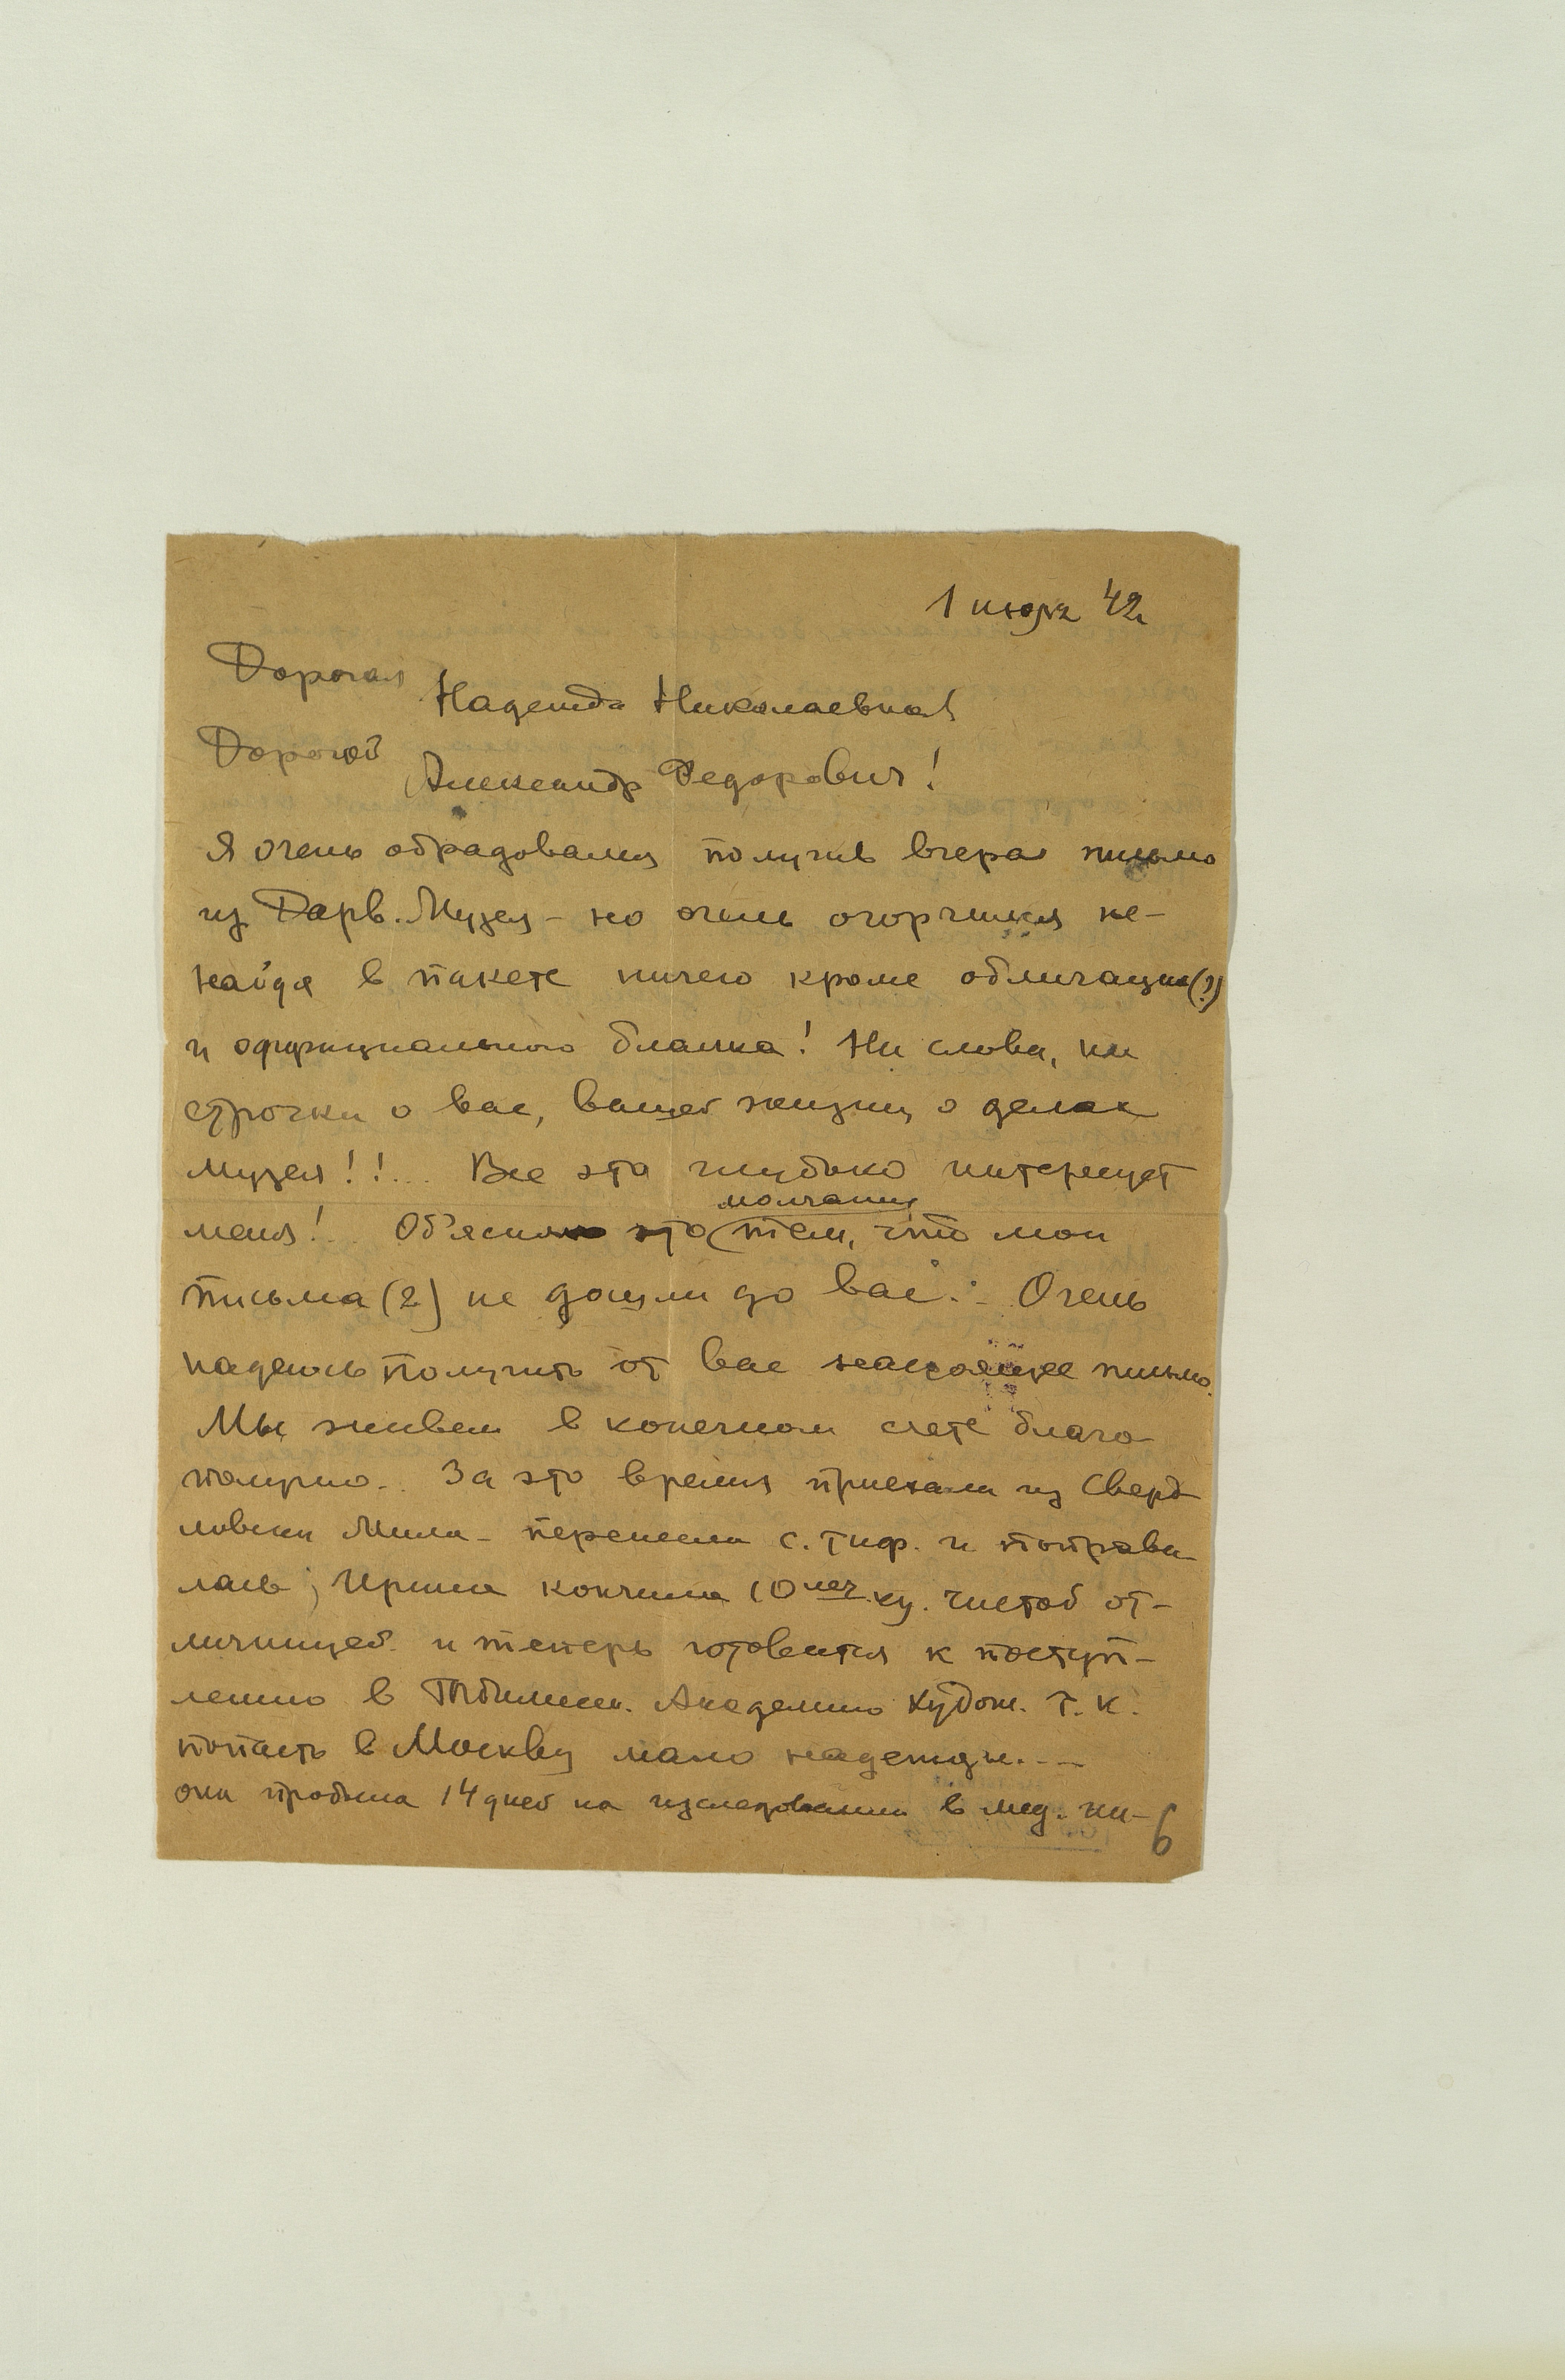 1 июля '42
Дорогая
Надежда Николаевна!
Дорогой
Александр Федорович!
Я очень обрадовался получив вчера письмо
из Дарв. Музея – но очень огорчился не-
найдя в пакете ничего кроме облигации(?)
и оффициального бланка! Ни слова, ни
строчки о вас, вашей жизни, о делах
музея!!... Все это глубоко интересует
молчание
меня!.. Об'ясняю это тем, что мои
письма (2) не дошли до вас... Очень
надеюсь получить от вас настоящее письмо.
Мы живем в конечном счете благо-
получно.. За это время приехала из Сверд-
ловска Мила – перенесла с. тиф. и поправи-
лась; Ирина кончила 10леч.ку. чистой от-
личницей. и теперь готовится к поступ-
лению в Тбилисск. Академию Худож. т. к.
попасть в Москву мало надежды....
она пробыла 14 дней на изследовании в мед. ин-
6